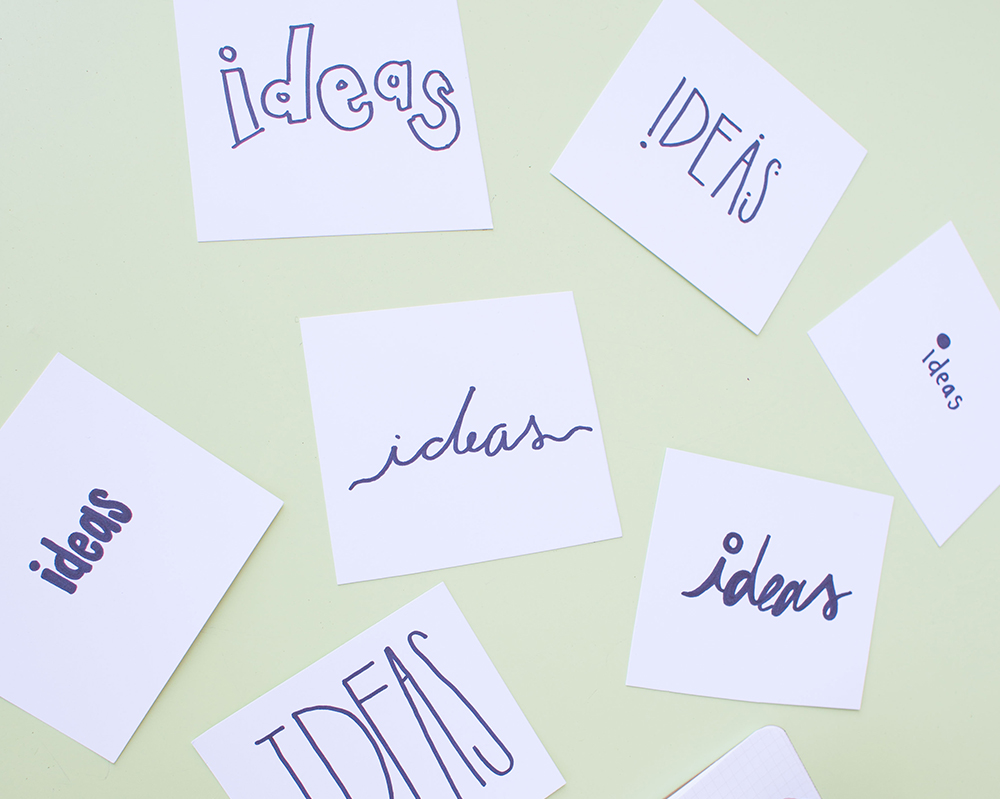 ideas
IDEAS
ideas
ideas
ideas
ideas
IDEAS